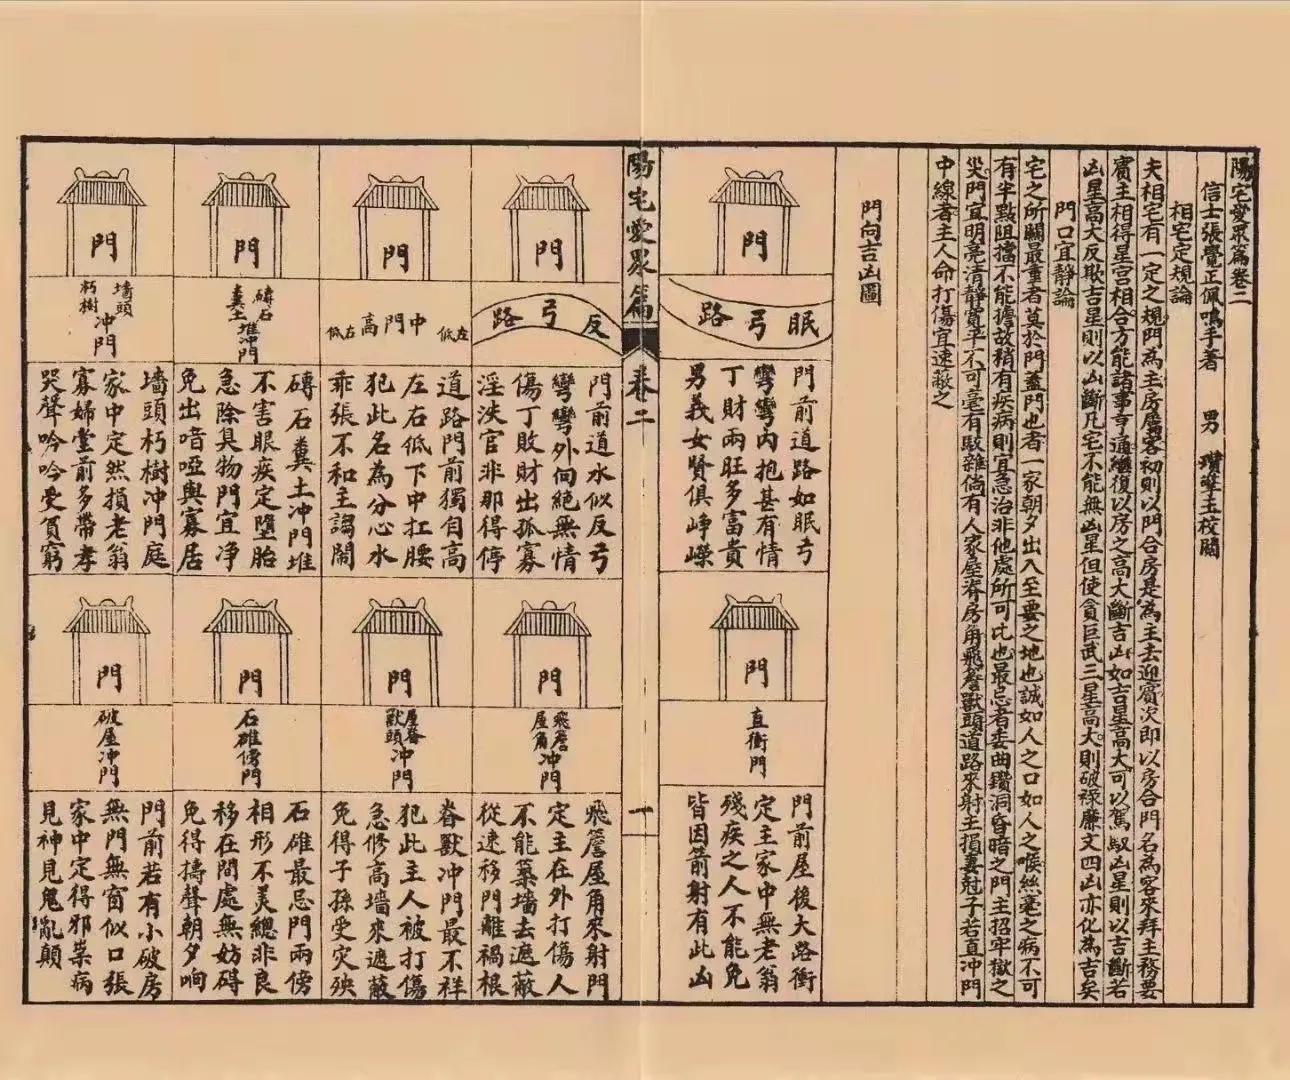 陽宅愛眾篇卷二
信士張覺正佩鳴手著 男 瓚 校閱
相宅定規論
夫相宅有一定之規門為主房屬客初則以門合房是為主去迎賓次即以房合門名為客來拜主務要
賓主相得星宮相合方能諸事亨通繼復以房之高大斷吉凶如吉星高大可以駕馭凶星則以吉斷若
凶星高大反欺吉星則以凶斷凡宅不能無凶星但使貪巨武三星高大則破祿廉文四凶亦化為吉矣
門口宜靜論
宅之所關最重者莫於門蓋門也者一家朝夕出入至要之地也誠如人之口如人之喉絲毫之病不可
有半點阻擋不能擔故稍有疾病則宜急治非他處所可比也最忌者委曲鑽洞昏暗之門主招牢獄之
災門宜明亮清靜寬平不可毫有駁雜倘有人家屋脊房角飛簷獸頭道路來射主損妻尅子若直冲門
中線者主人命打傷宜速蔽之
門向吉凶圖
門
眠弓路
門前道路如眠弓
彎彎內抱甚有情
丁財兩旺多富貴
男義女賢俱崢嶸
門
直衝門
門前屋後大路衝
定主家中無老翁
殘疾之人不能免
皆因箭射有此凶
陽宅愛眾篇 卷二 一
門
反弓路
門前道水似反弓
彎彎外向絕無情
傷丁敗財出孤寡
淫泆官非那得停
門
左低 中門高 右低
道路門前獨自高
左右低下中扛腰
犯此名為分心水
乖張不和主謅鬧
門
磚石糞土堆冲門
磚石糞土冲門堆
不害眼疾定墮胎
急除具物門宜净
免出喑啞與寡居
門
墻頭朽樹冲門
墻頭朽樹冲門庭
家中定然損老翁
寡婦堂前多帶孝
哭聲吟吟受貧窮
門
飛簷屋角冲門
飛簷屋角來射門
定主在外打傷人
不能築墻去遮蔽
從速移門離禍根
門
屋脊獸頭冲門
脊獸冲門最不祥
犯此主人被打傷
急修高墻來遮蔽
免得子孫受灾殃
門
石碓傍門
石碓最忌門兩傍
相形不美總非良
移在間處無妨碍
免得擣聲朝夕响
門
破屋冲門
門前若有小破房
無門無窗似口張
家中定得邪祟病
見神見鬼亂顛